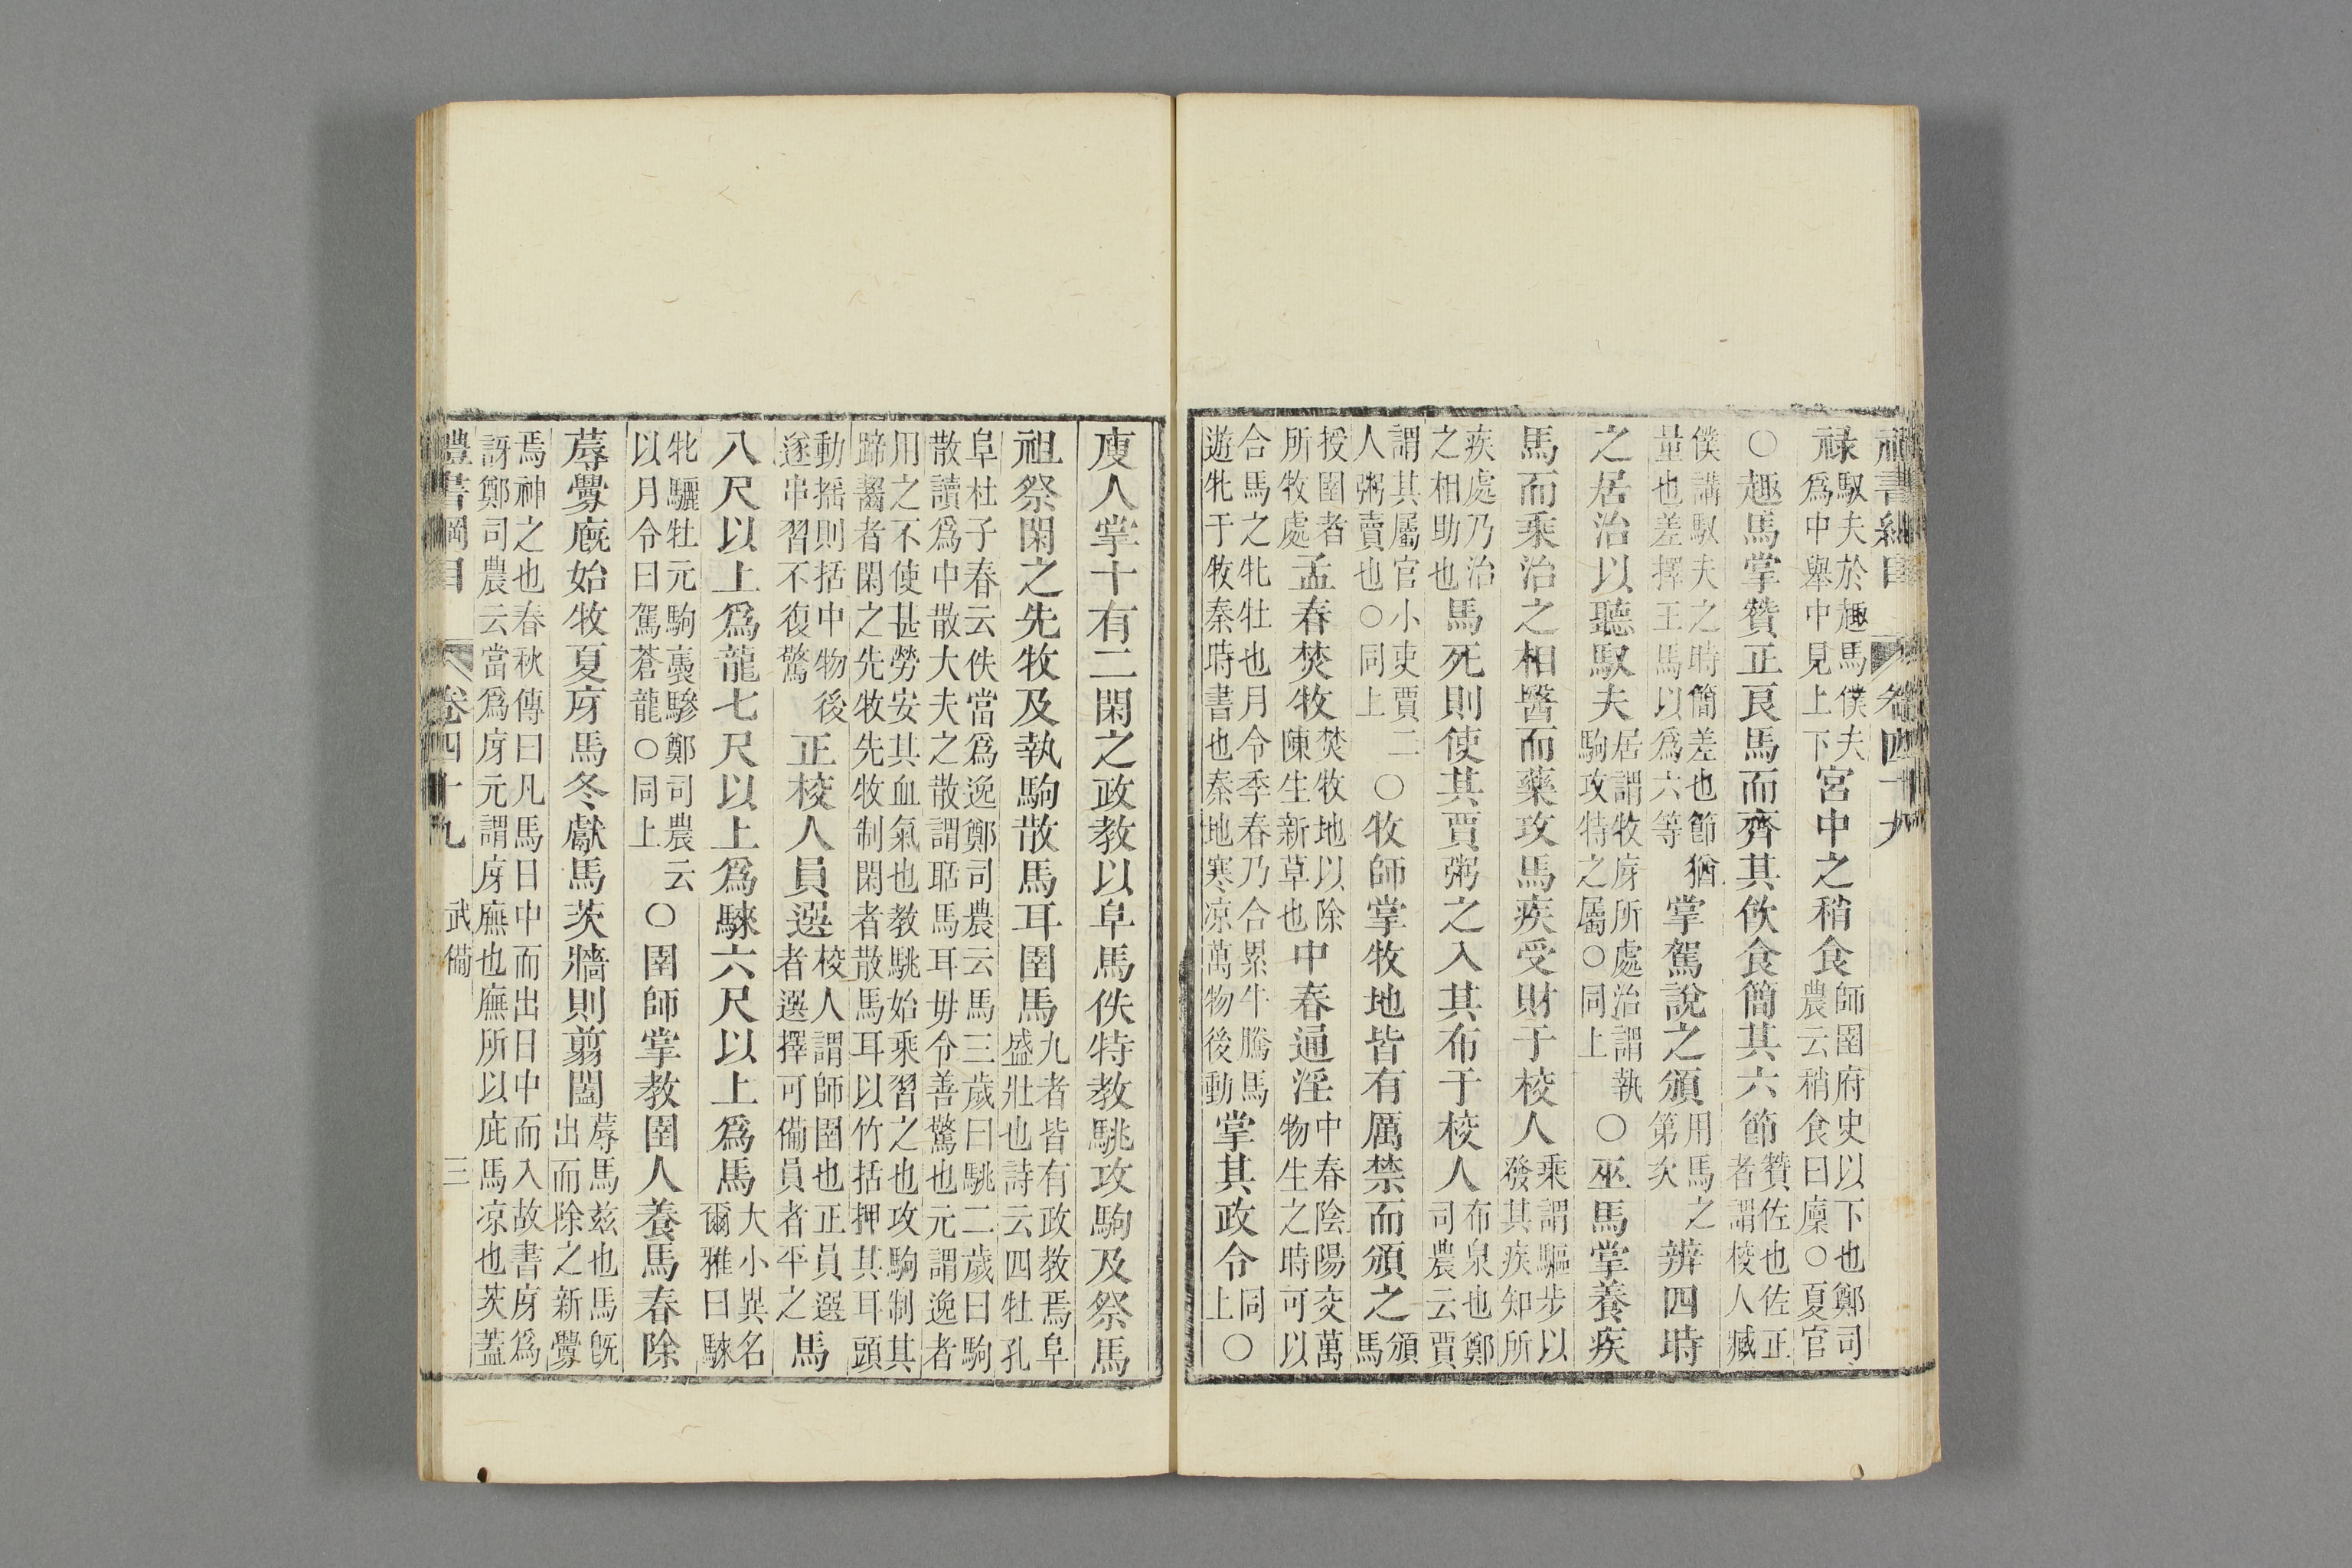 禮書綱目 卷四十九
祿馭夫於趣馬僕夫爲中舉中見上下宮中之稍食師圉府史以下也鄭司農云稍食曰廩○夏官
○趣馬掌贊正良馬而齊其飲食簡其六節贊佐也佐正者謂校人臧
僕講馭夫之時簡差也節猶量也差擇王馬以爲六等掌駕說之頒用馬之第次辨四時
之居治以聽馭夫居謂牧庌所處治謂執駒攻特之屬○同上○巫馬掌養疾
馬而乘治之相醫而藥攻馬疾受財于校人乘謂驅步以發其疾知所
疾處乃治之相助也馬死則使其賈粥之入其布于校人布泉也鄭司農云賈
謂其屬官小吏賈二人粥賣也○同上○牧師掌牧地皆有厲禁而頒之頒馬
授圉者所牧處孟春焚牧焚牧地以除陳生新草也中春通淫中春陰陽交萬物生之時可以
合馬之牝牡也月令季春乃合累牛騰馬遊牝于牧秦時書也秦地寒凉萬物後動掌其政令同上○
廋人掌十有二閑之政教以阜馬佚特教駣攻駒及祭馬
祖祭閑之先牧及執駒散馬耳圉馬九者皆有政教焉阜盛壯也詩云四牡孔
阜杜子春云佚當爲逸鄭司農云馬三歲曰駣二歲曰駒散讀爲中散大夫之散謂聒馬耳毋令善驚也元謂逸者
用之不使甚勞安其血氣也教駣始乘習之也攻駒制其蹄齧者閑之先牧先牧制閑者散馬耳以竹括押其耳頭
動搖則括中物後遂串習不復驚正校人員選校人謂師圉也正員選者選擇可備員者平之馬
八尺以上爲龍七尺以上爲騋六尺以上爲馬大小異名爾雅曰騋
牝驪牡元駒褭驂鄭司農云以月令曰駕蒼龍○同上○圉師掌教圉人養馬春除
蓐釁廐始牧夏庌馬冬獻馬茨牆則翦闔蓐馬玆也馬旣出而除之新釁
焉神之也春秋傳曰凡馬日中而出日中而入故書庌爲訝鄭司農云當爲庌元謂庌廡也廡所以庇馬凉也茨蓋
禮書綱目 卷四十九 武備 三